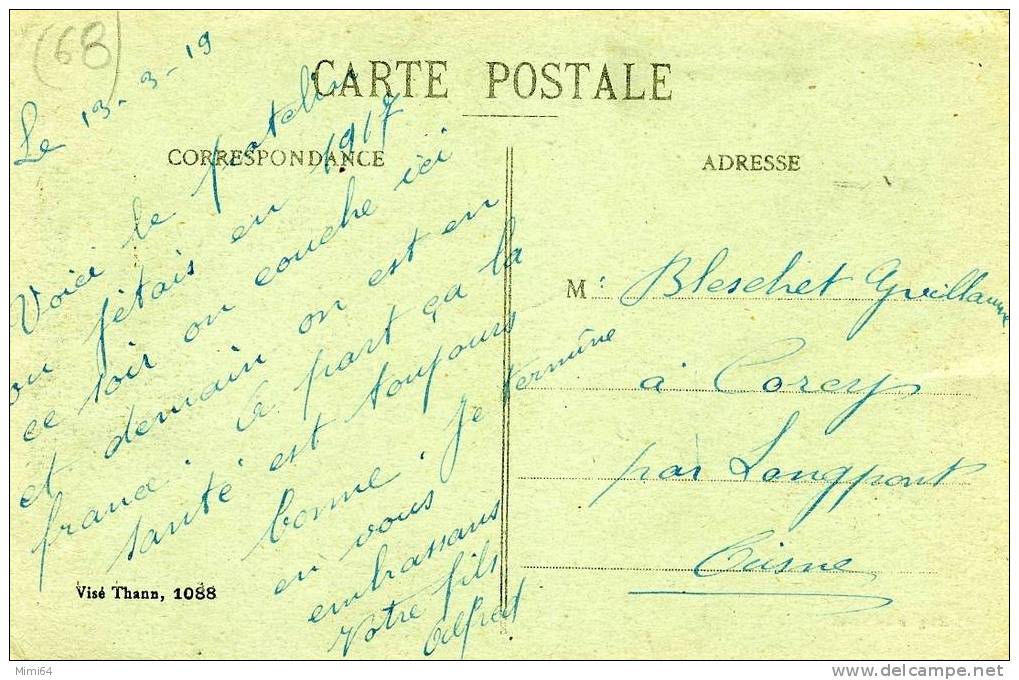 (68)
CARTE POSTALE
CORRESPONDANCE
ADRESSE
Le 13-3-19
Voici le patelin
ou jétais en 1917
ce soir on couche ici
et demain on est en
france. a part ça la
santé est toujours
bonne. Je termine
en vous
embrassans
Votre fils
Alfred
M: Bleschet Guillaume
à Corcy
par Longpont
Aisne
Visé Thann, 1088
Mimi64
www.delcampe.net